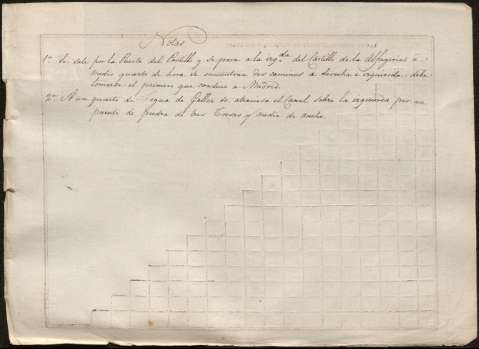 Notas
1ª Se sale por la Puerta del Portillo y se pasa a la izqda del Castillo de la Alfageria á
medio quarto de hora se encuentran dos caminos a derecha é izquierda, debe
tomarse el primero que conduce a Madrid.
2ª A un quarto de legua de Gallur se atraviesa el Canal sobre la izquierda por un
puente de piedra de tres Toesas y media de ancho.